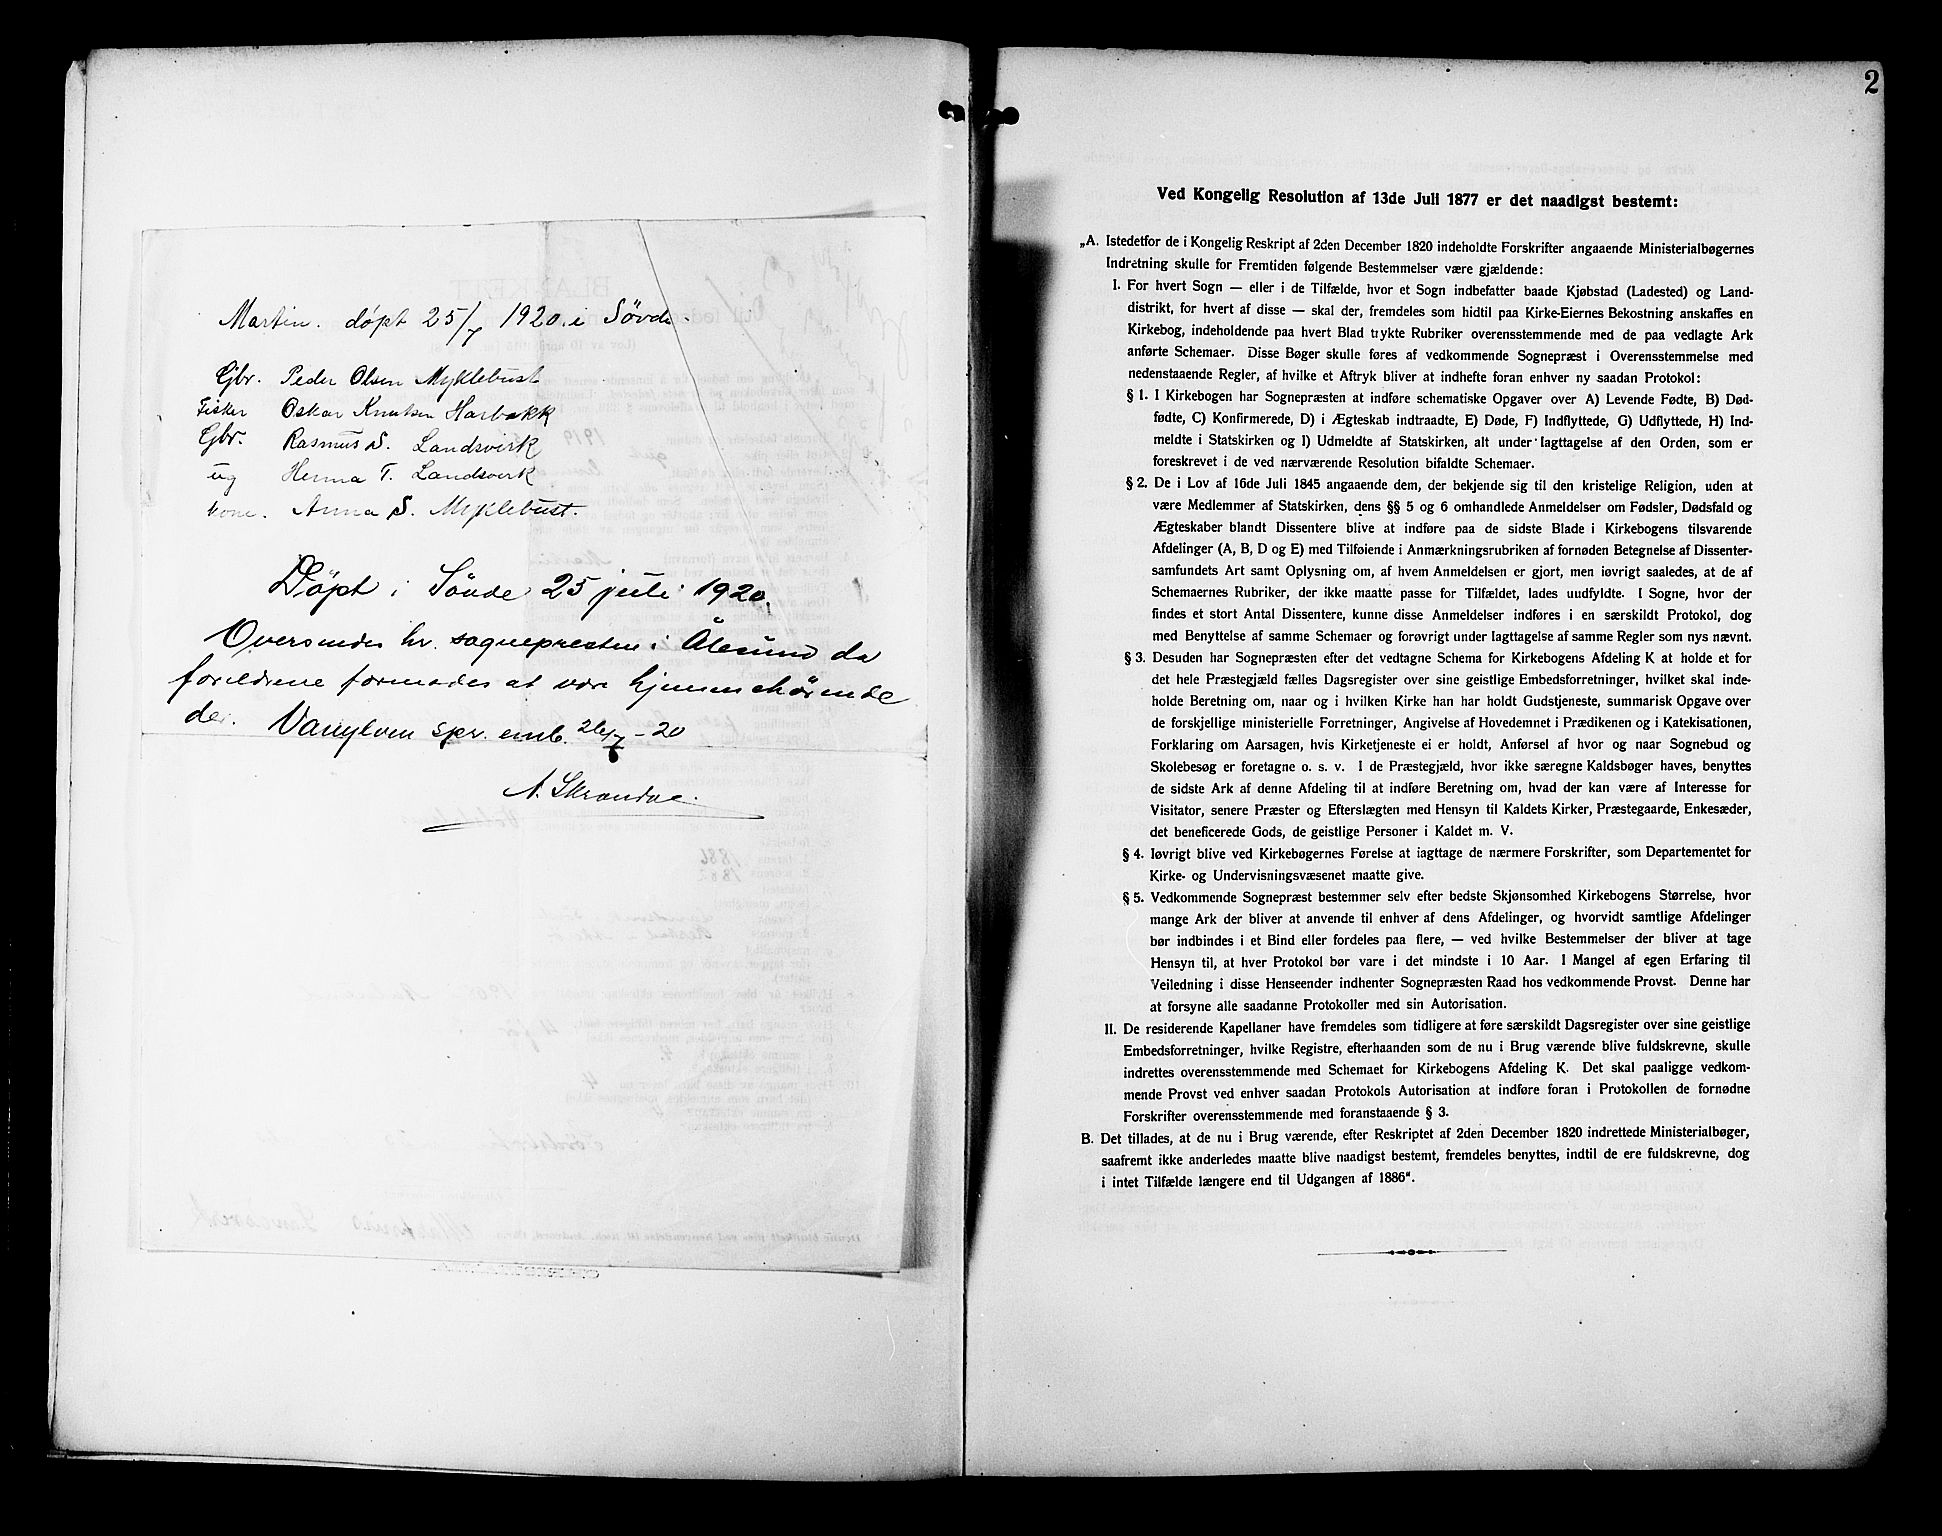 Martin. døpt 25/7 1920. i Søvde.
Gbr. Peder Olsen Myklebust
Fisker Oskar Knutsen Harbakk
Gbr. Rasmus S. Landsvirk
ug Henna T. Landsverk
kone. Anna S. Myklebust.
Døpt i Søvde 25 juli 1920.
Oversendes hr. sognepresten i Ålesund da
foreldrene formodes at være hjemmehørende
der. Vanylven spr. emb. 26/7-20
2
Ved Kongelig Resolution af 13de Juli 1877 er det naadigst bestemt:
„A. Istedetfor de i Kongelig Reskript af 2den December 1820 indeholdte Forskrifter angaaende Ministerialbøgernes
Indretning skulle for Fremtiden følgende Bestemmelser være gjældende:
I. For hvert Sogn — eller i de Tilfælde, hvor et Sogn indbefatter baade Kjøbstad (Ladested) og Land-
distrikt, for hvert af disse — skal der, fremdeles som hidtil paa Kirke-Eiernes Bekostning anskaffes en
Kirkebog, indeholdende paa hvert Blad trykte Rubriker overensstemmende med de paa vedlagte Ark
anførte Schemaer. Disse Bøger skulle føres af vedkommende Sognepræst i Overensstemmelse med
nedenstaaende Regler, af hvilke et Aftryk bliver at indhefte foran enhver ny saadan Protokol:
§ 1. I Kirkebogen har Sognepræsten at indføre schematiske Opgaver over A) Levende Fødte, B) Død-
fødte, C) Konfirmerede, D) i Ægteskab indtraadte, E) Døde, F) Indflyttede, G) Udflyttede, H) Ind-
meldte i Statskirken og I) Udmeldte af Statskirken, alt under Iagttagelse af den Orden, som er
foreskrevet i de ved nærværende Resolution bifaldte Schemaer.
§ 2. De i Lov af 16de Juli 1845 angaaende dem, der bekjende sig til den kristelige Religion, uden at
være Medlemmer af Statskirken, dens §§ 5 og 6 omhandlede Anmeldelser om Fødsler, Dødsfald og
Ægteskaber blandt Dissentere blive at indføre paa de sidste Blade i Kirkebogens tilsvarende
Afdelinger (A, B, D og E) med Tilføiende i Anmærkningsrubriken af fornøden Betegnelse af Dissenter-
samfundets Art samt Oplysning om, af hvem Anmeldelsen er gjort, men iøvrigt saaledes, at de af
Schemaernes Rubriker, der ikke maatte passe for Tilfældet, lades uudfyldte. I Sogne, hvor der
findes et stort Antal Dissentere, kunne disse Anmeldelser indføres i en særskildt Protokol, dog
med Benyttelse af samme Schemaer og forøvrigt under Iagttagelse af samme Regler som nys nævnt.
§ 3. Desuden har Sognepræsten efter det vedtagne Schema for Kirkebogens Afdeling K at holde et for
det hele Præstegjæld fælles Dagsregister over sine geistlige Embedsforretninger, hvilket skal inde-
holde Beretning om, naar og i hvilken Kirke han har holdt Gudstjeneste, summarisk Opgave over
de forskjellige ministerielle Forretninger, Angivelse af Hovedemnet i Prædikenen og i Katekisationen,
Forklaring om Aarsagen, hvis Kirketjeneste ei er holdt, Anførsel af hvor og naar Sognebud og
Skolebesøg er foretagne o. s. v. I de Præstegjæld, hvor ikke særegne Kaldsbøger haves, benyttes
de sidste Ark af denne Afdeling til at indføre Beretning om, hvad der kan være af Interesse for
Visitator, senere Præster og Efterslægten med Hensyn til Kaldets Kirker, Præstegaarde, Enkesæder,
det beneficerede Gods, de geistlige Personer i Kaldet m. V.
§ 4. Iøvrigt blive ved Kirkebøgernes Førelse at iagttage de nærmere Forskrifter, som Departementet for
Kirke- og Undervisningsvæsenet maatte give.
§ 5. Vedkommende Sognepræst bestemmer selv efter bedste Skjønsomhed Kirkebogens Størrelse, hvor
mange Ark der bliver at anvende til enhver af dens Afdelinger, og hvorvidt samtlige Afdelinger
bør indbindes i et Bind eller fordeles paa flere, — ved hvilke Bestemmelser der bliver at tage
Hensyn til, at hver Protokol bør vare i det mindste i 10 Aar. I Mangel af egen Erfaring til
Veiledning i disse Henseender indhenter Sognepræsten Raad hos vedkommende Provst. Denne har
at forsyne alle saadanne Protokoller med sin Autorisation.
II. De residerende Kapellaner have fremdeles som tidligere at føre særskildt Dagsregister over sine geistlige
Embedsforretninger, hvilke Registre, efterhaanden som de nu i Brug værende blive fuldskrevne, skulle
indrettes overensstemmende med Schemaet for Kirkebogens Afdeling K. Det skal paaligge vedkom-
mende Provst ved enhver saadan Protokols Autorisation at indføre foran i Protokollen de fornødne
Forskrifter overensstemmende med foranstaaende § 3.
B. Det tillades, at de nu i Brug værende, efter Reskriptet af 2den December 1820 indrettede Ministerialbøger,
saafremt ikke anderledes maatte blive naadigst bestemt, fremdeles benyttes, indtil de ere fuldskrevne, dog
i intet Tilfælde længere end til Udgangen af 1886“.